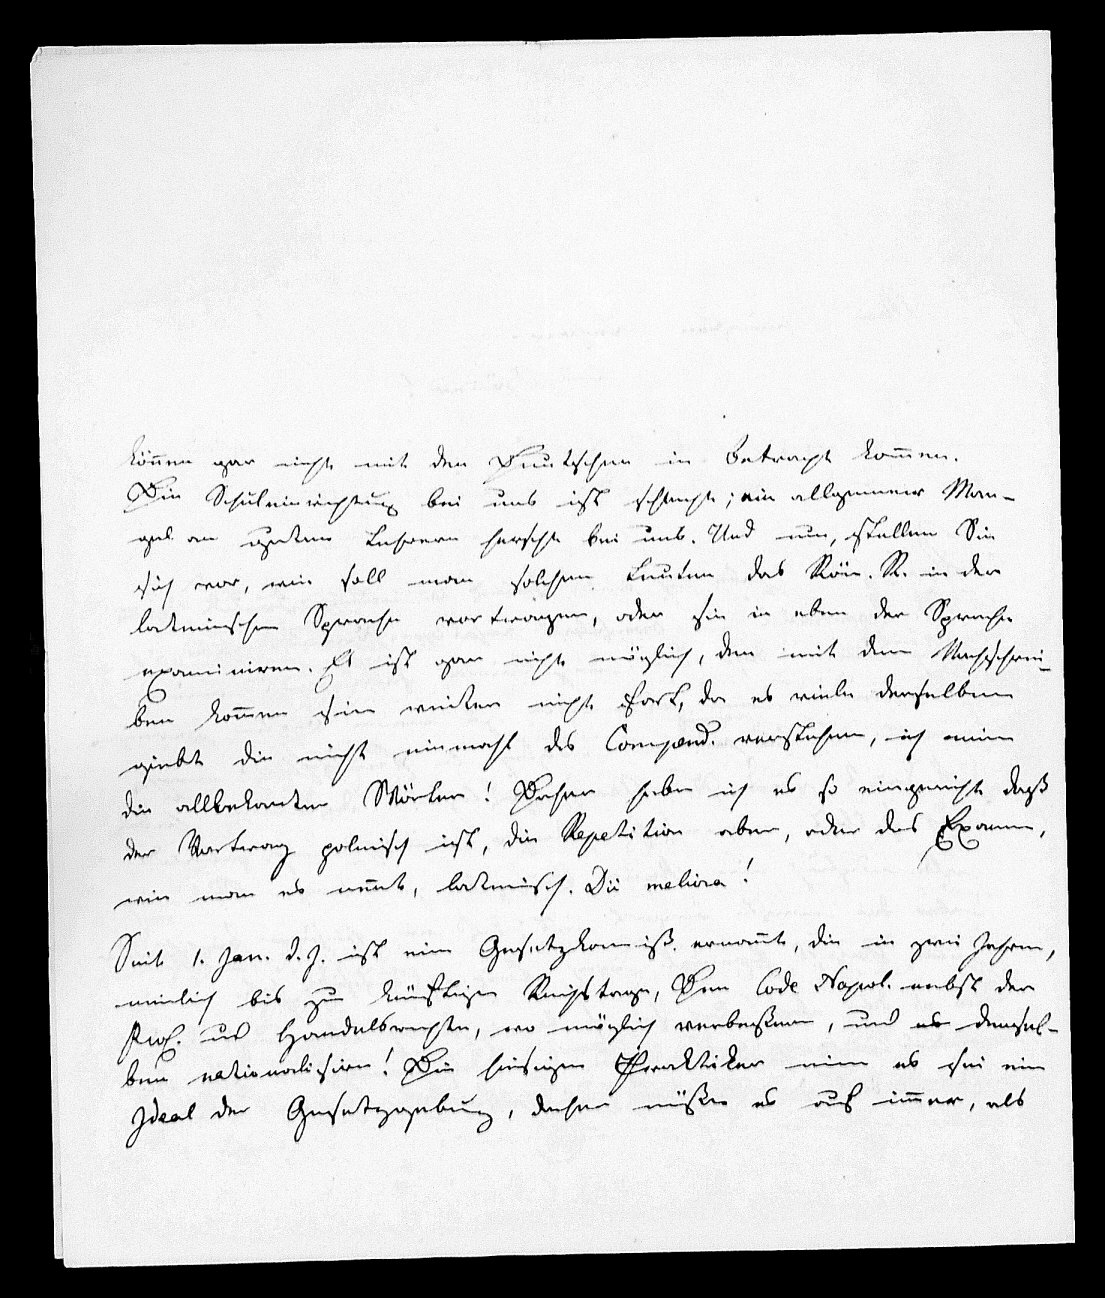 können gar nicht mit den Deutschen in Betracht kommen.
Die Schuleinrichtung bei uns ist schlecht; ein allgemeiner Man-
gel an guten Lehrern herscht bei uns. Und nun, stellen Sie
sich vor, wie soll man solchen Leuten das Röm. R. in der
lateinischen Sprache vortragen, oder sie in eben der Sprache
examiniren. Es ist gar nicht möglich, den mit dem Nachschrei-
ben kommen sie weiter nicht fort, da es viele derselben
giebt die nicht einmahl das Compend. verstehen, ich meine
die allbekanten Wörter! Daher habe ich es so eingericht daß
der Vortrag polnisch ist, die Repetition aber, oder das Examen,
wie man es nennt, lateinisch. Dii meliora!
Seit 1. Jan. d. J. ist eine Gesetzkommiß. ernannt, die in zwei Jahren,
nemlich bis zum künftigen Reichstage, den Code Napol. nebst der
Proz. und Handelsrechte, wo möglich verbeßern, und es densel-
ben nationalisiren! Die hiesigen Praktiker meinen es sei ein
Ideal der Gesetzgebung, daher müße es auf immer, als